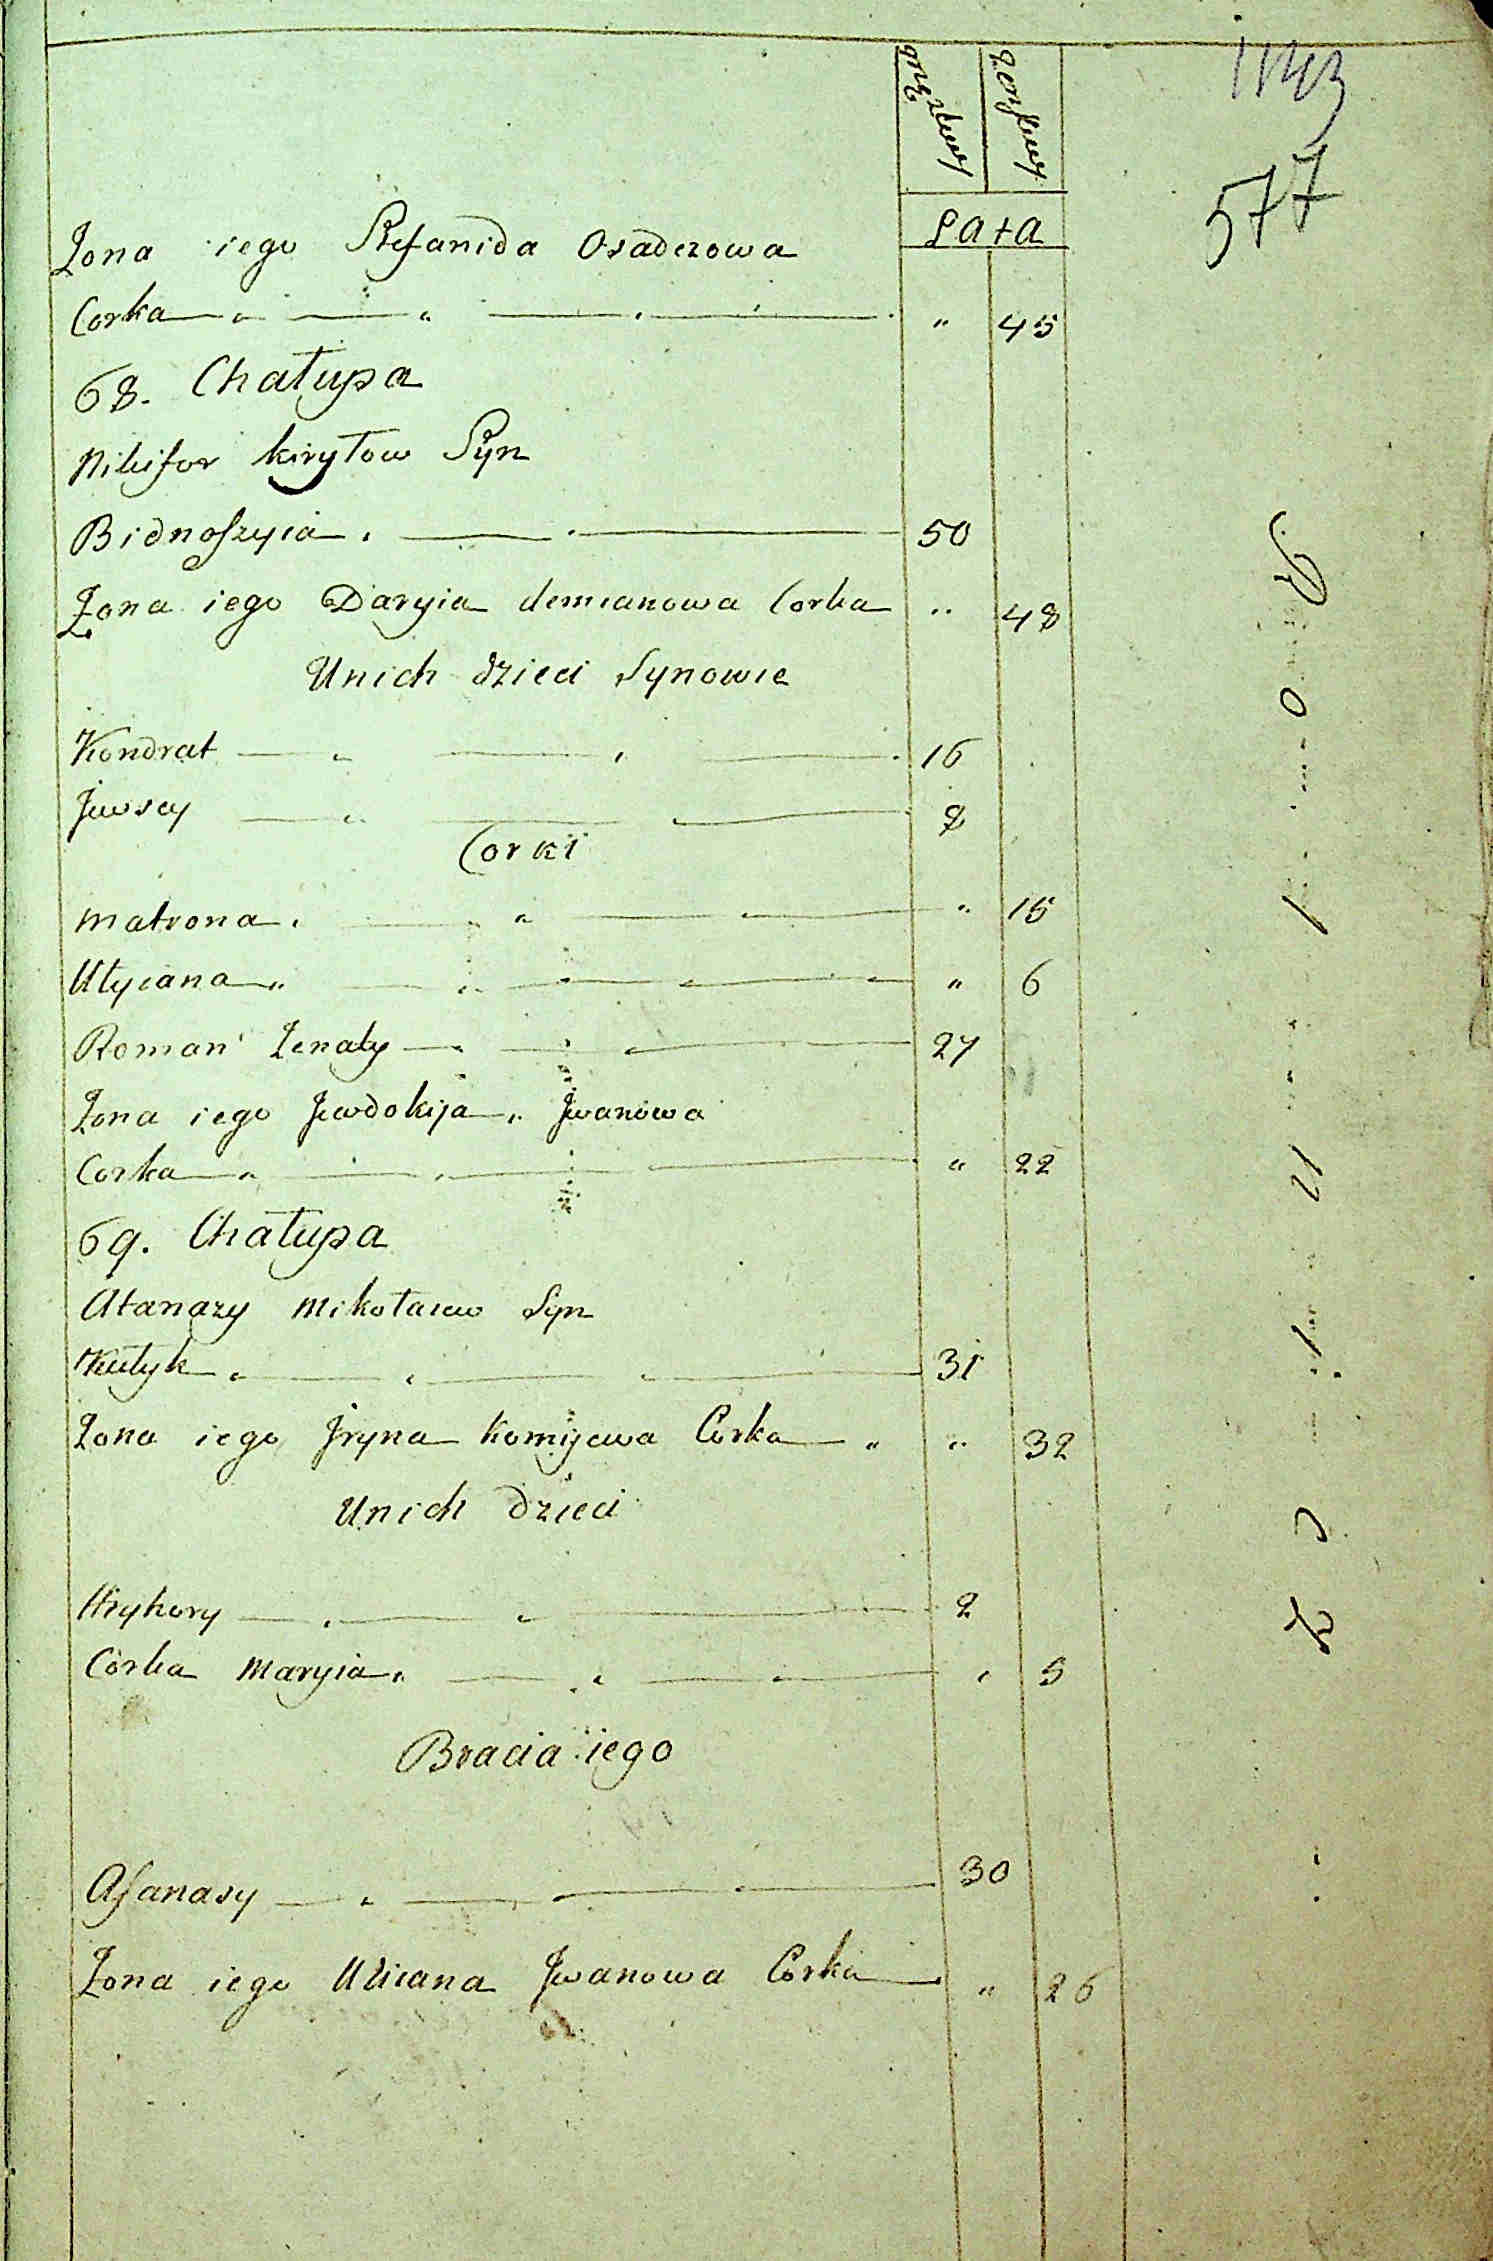 męzkiey żenskiey
577
Lata
Żona iego Stefanida Osadczowa
Corka " " " 45
68. Chałupa
Nikifor kiryłow Syn
Bidnoszyia 50
Żona iego Daryia demianowa Corka " 48
Unich dzieci Synowie
Kondrat " 16
Jewsey " 8
Corki
matrona " " 15
Ulyiana " " 6
Roman Żonaty 27
Żona iego Jewdokija Jwanowa
Corka " " 22
69. Chałupa
Atanazy Mikołaiew Syn
Kutyk " 31
Żona iego Jryna Komijewa Corka " " 32
Unich dzieci
Hryhory 2
Córka Maryia " 5
Bracia iego
Afanasy 30
Żona iego Uliana Jwanowa Corka " 26